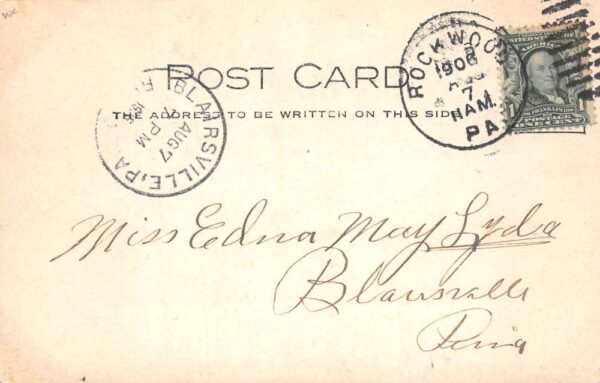 WK
POST CARD
THE ADDRESS TO BE WRITTEN ON THIS SIDE
ROCKWOOD
1906
AUG
7
11AM.
PA.
BLAIRSVILLE, PA.
AUG 7
PM
ONE CENT
Miss Edna May Lyda
Blairsville
Penna